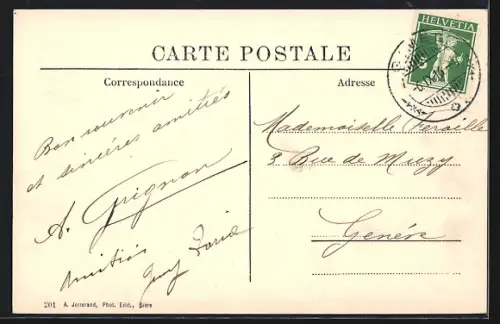 CARTE POSTALE
Correspondance
Bon souvenir
et sincères amitiés
A. Grignon
Amitiés
Adresse
HELVETIA
Mademoiselle
3 Rue de Muzy
Genève
201 A. Jeanrenaud, Phot. Edit., Bière